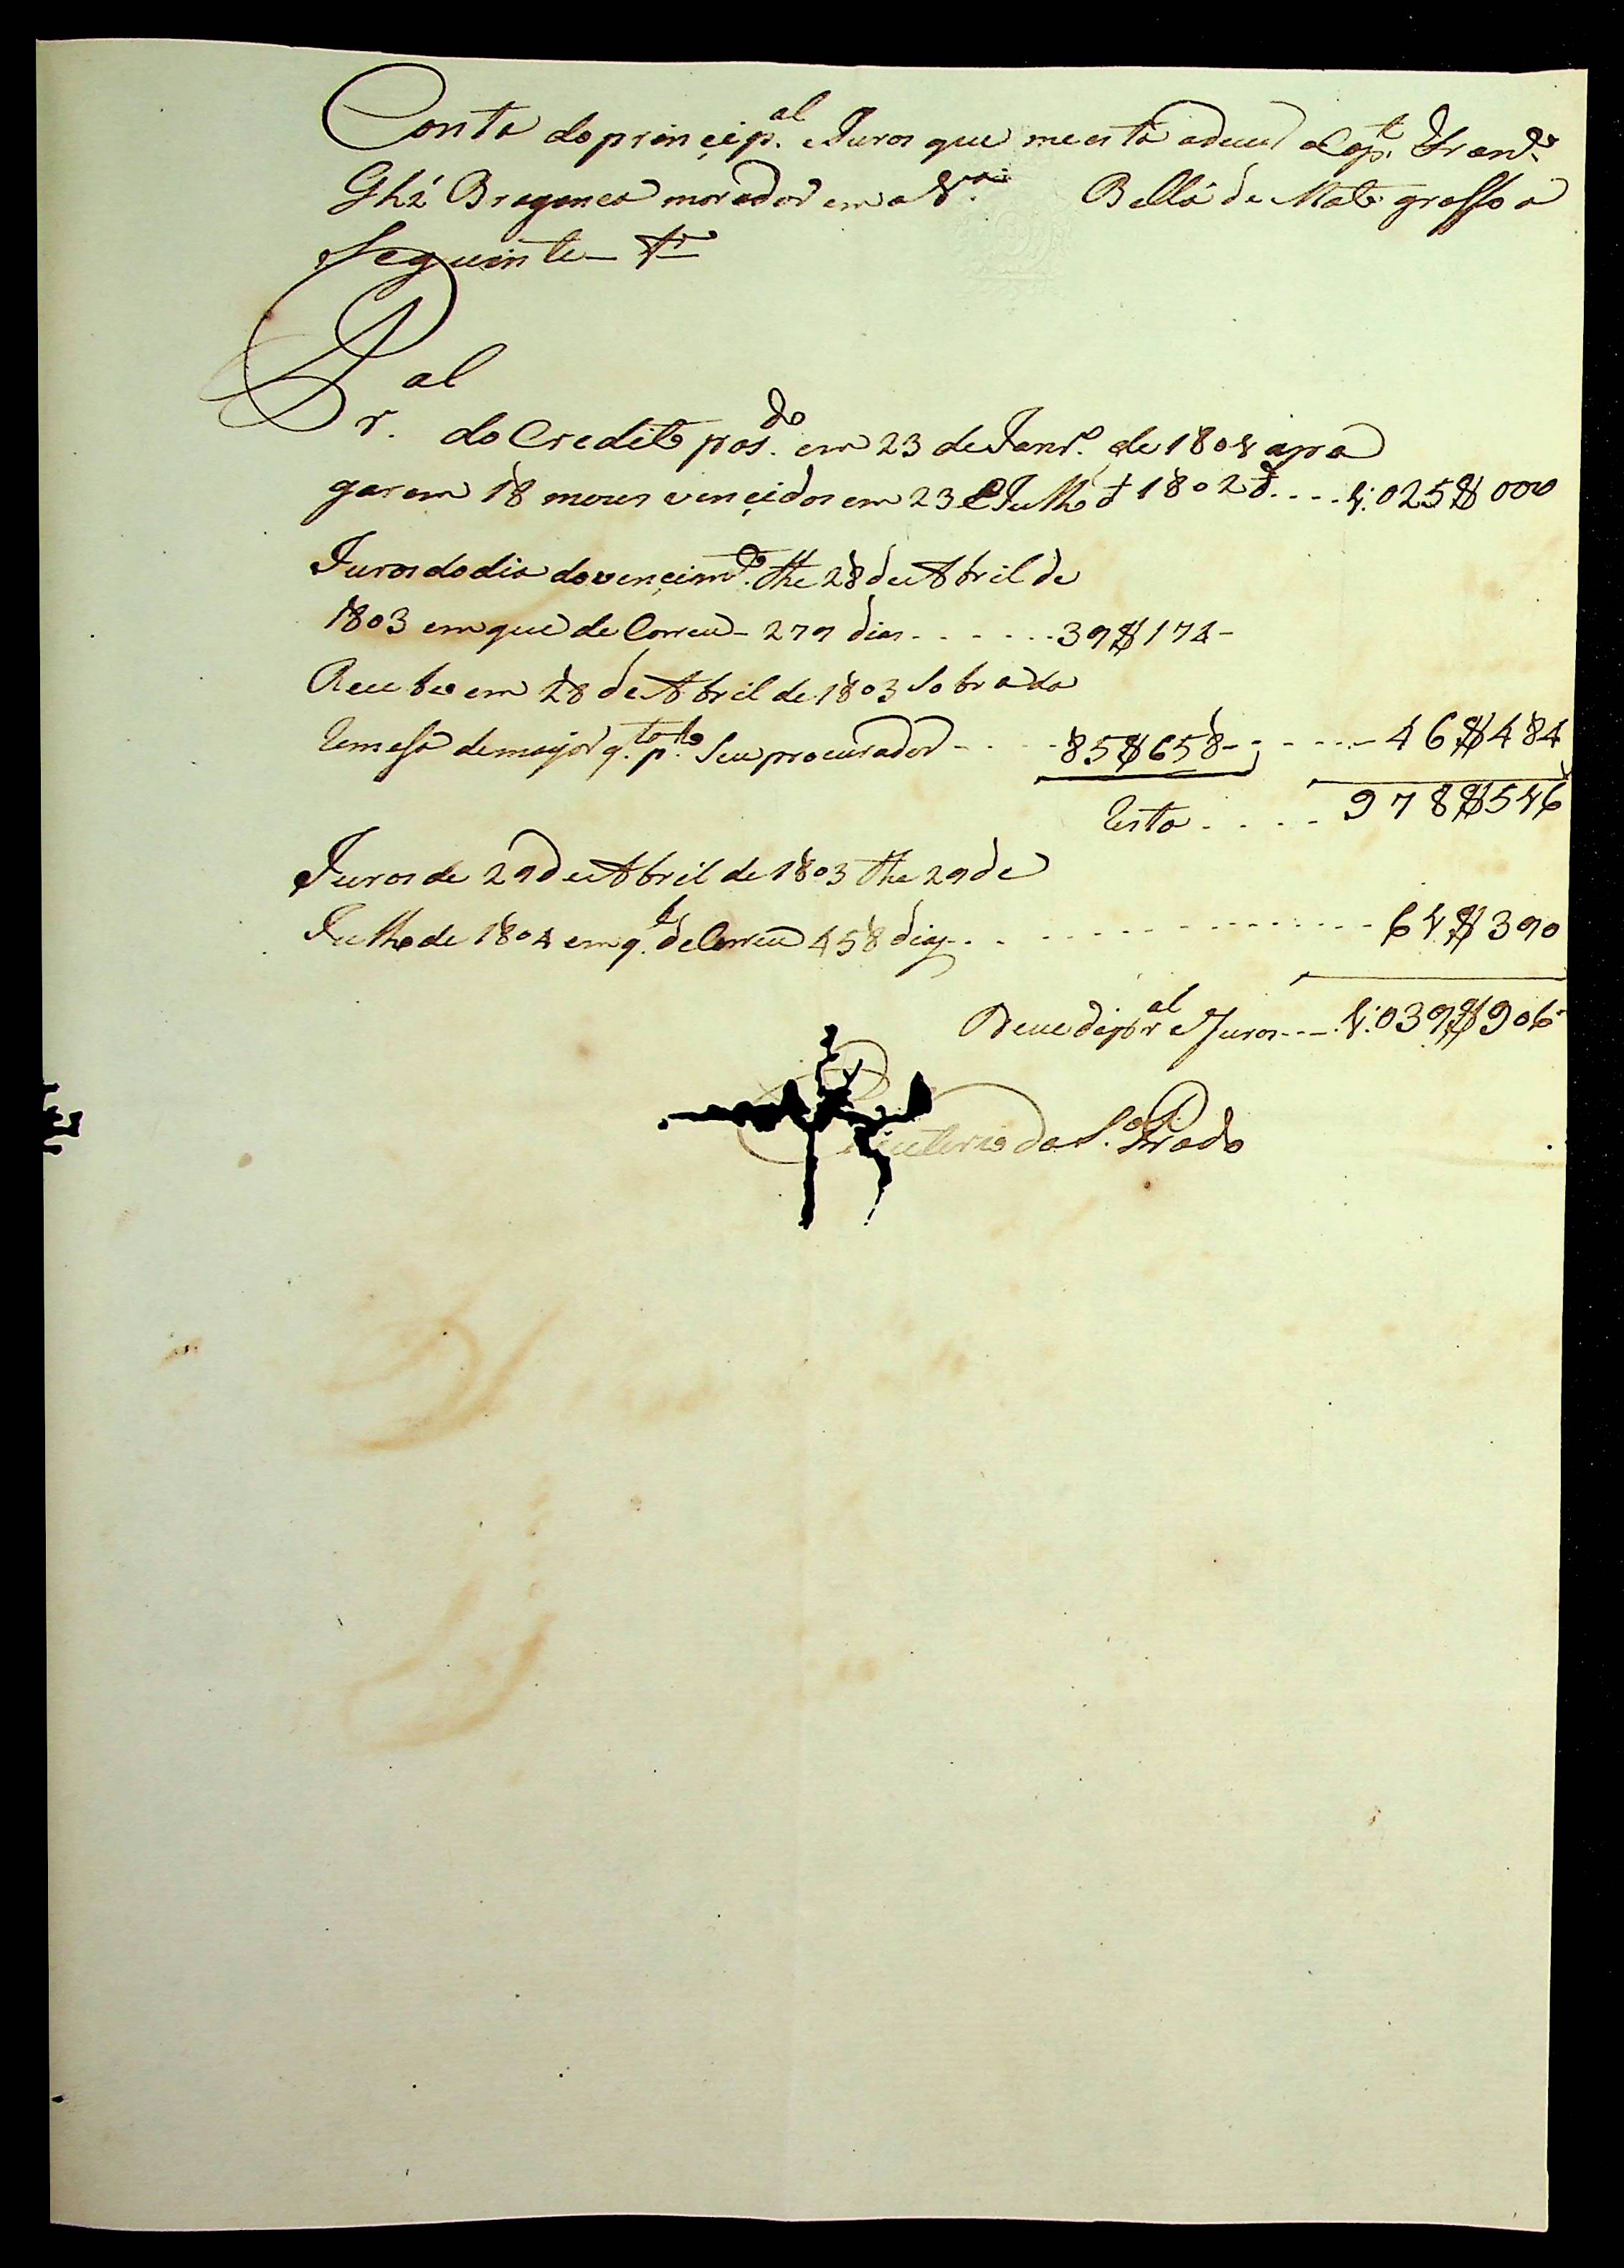 Conta do princip.al e Juros que me esta a dever o Cap.t Fran.co
Glz' Bragança morador em a V.a Bella de Mato grosso a
Seguinte
P.al do Credito pas.do em 23 de Janr.o de 1801 apa
gar em 18 mezes vencidos em 23 de Julho d 1802 .... 1:025$000
Juros do dia do vencim.to the 28 de Abril de
1803 em que de Correu - 279 dias ...... 39$174 -
Recebeo em 28 de Abril de 1803 Sobra da
Remessa de mayor q.tia p.lo Seu procurador - . . - 85$658 - - - - - 46$484
Resta . . . . 978$516
Juros de 29 de Abril de 1803 the 29 de
Julho de 1804 em q. de Correu 458 dias . . ---------- 61$390
Deve de p.r al e Juros --- 1:039$906
Eleuterio da S.a Prado